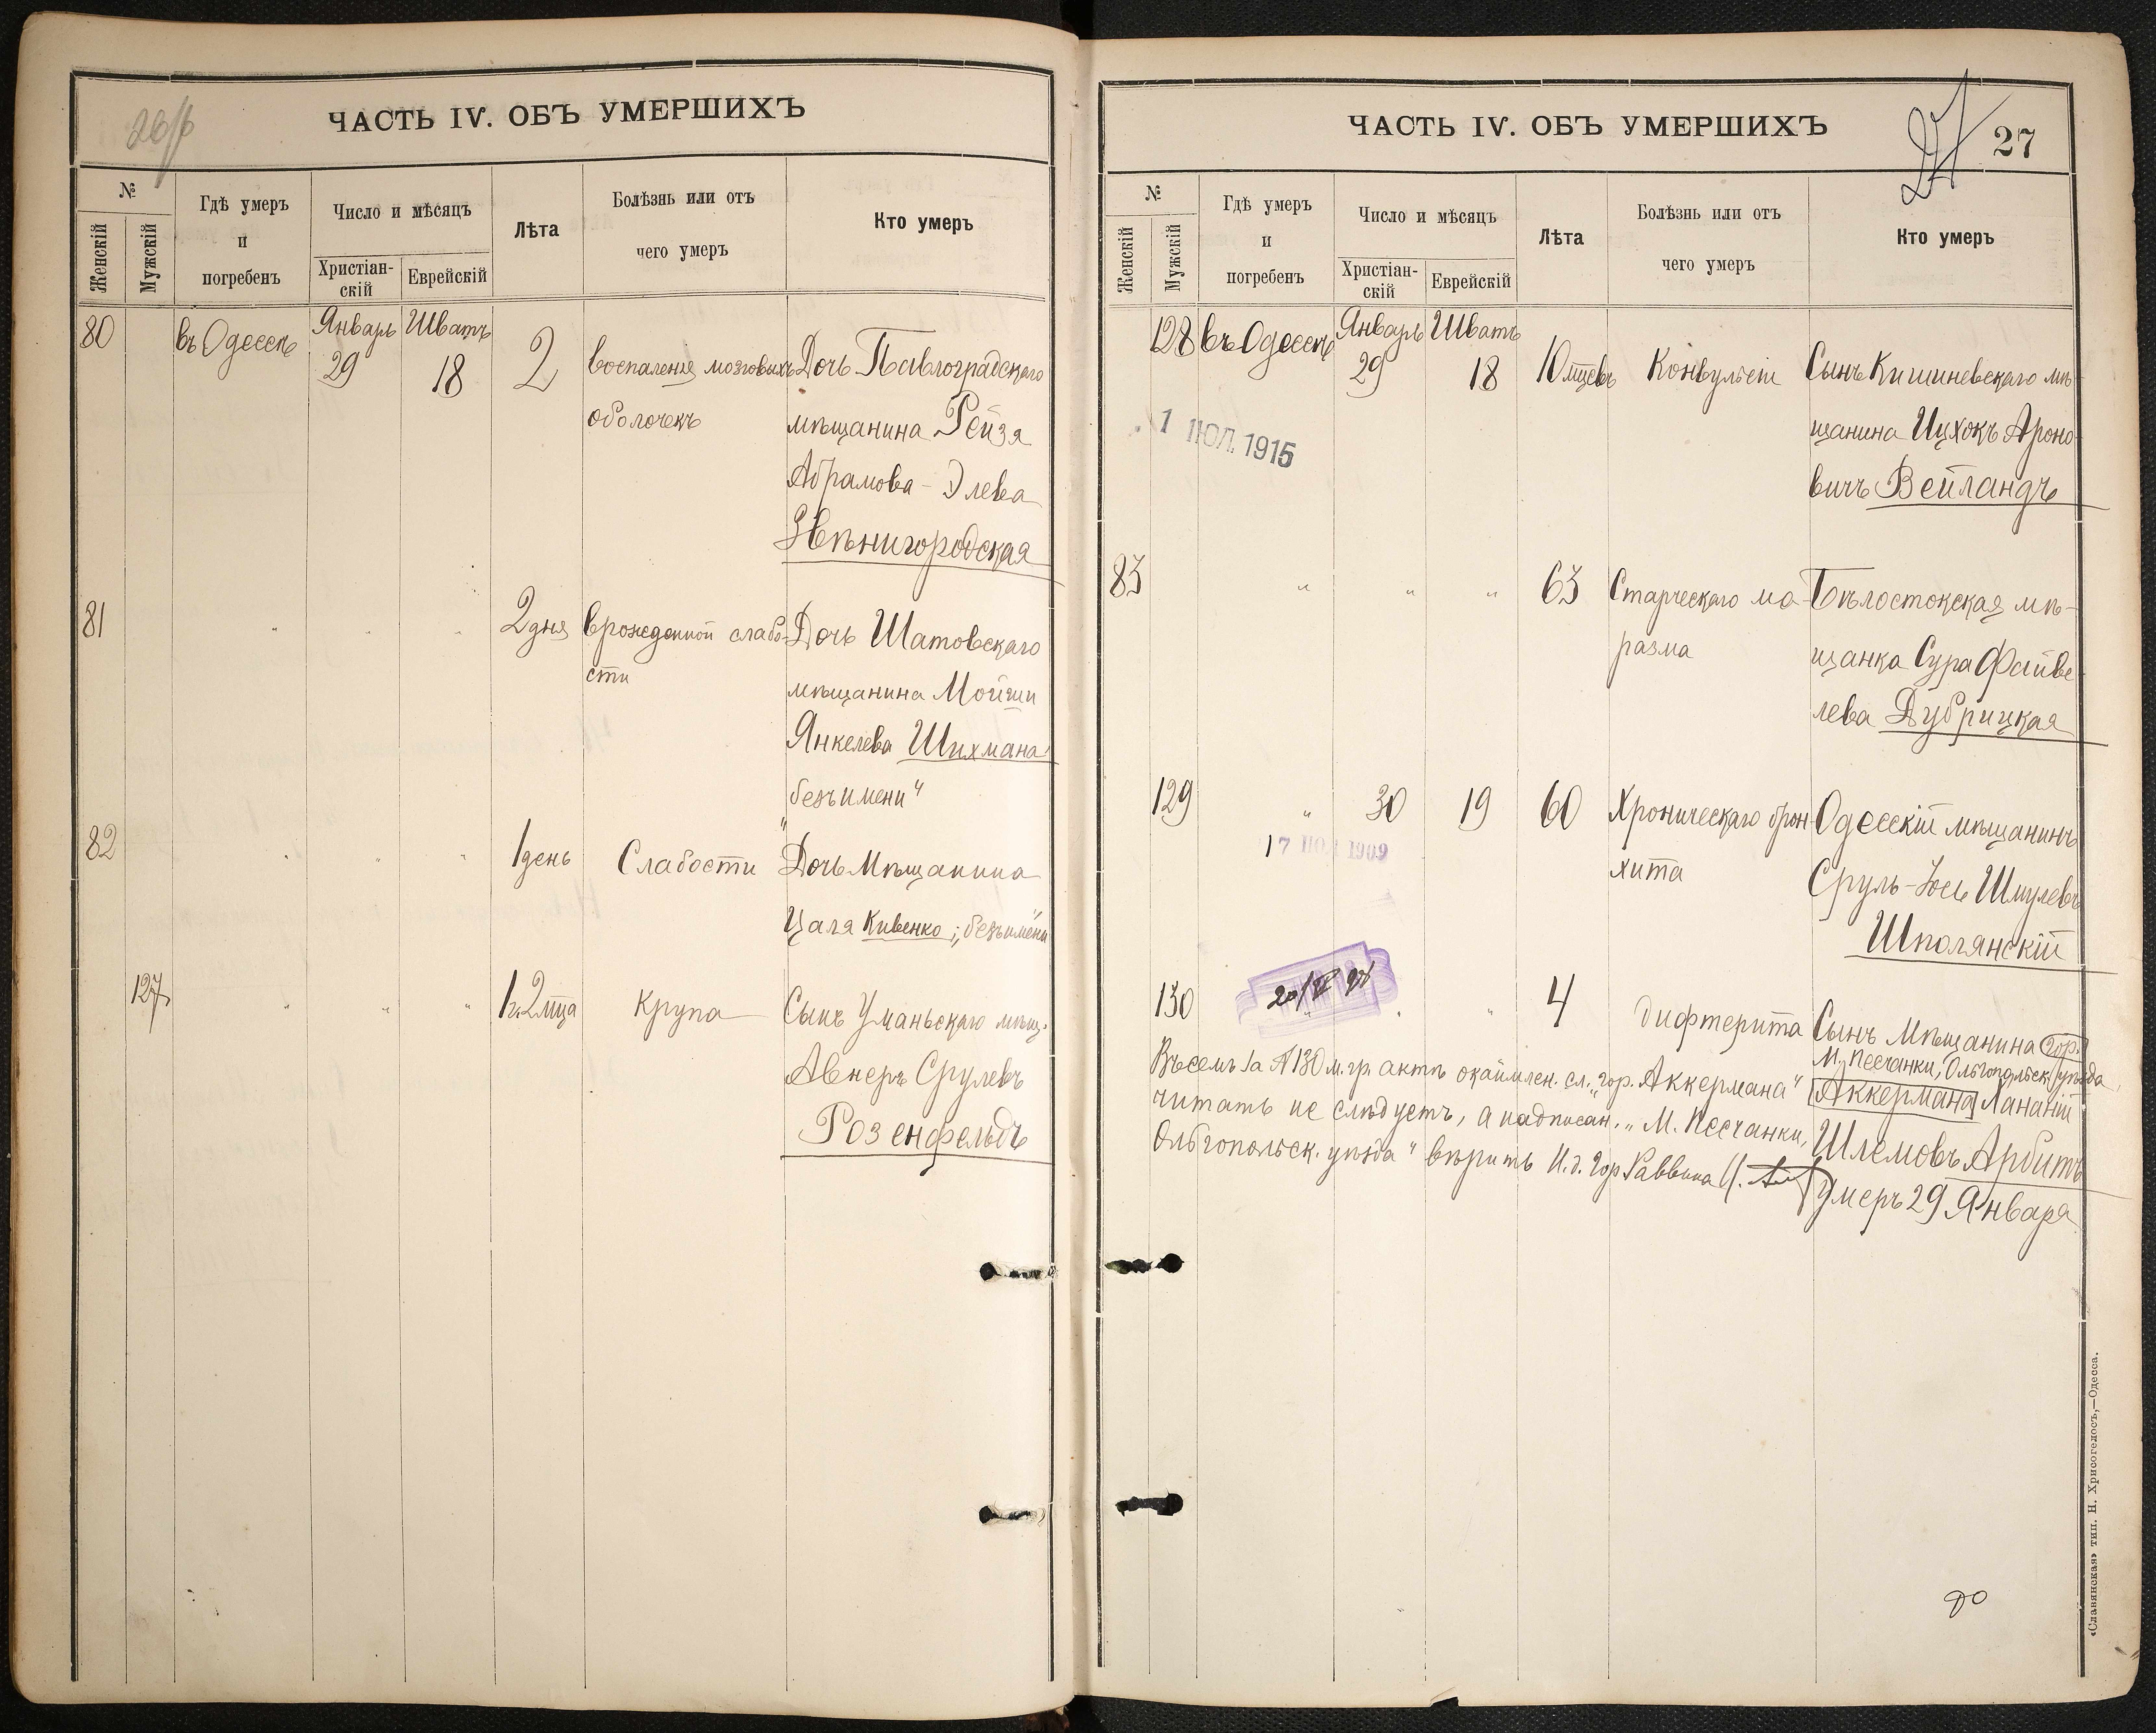 26/б
ЧАСТЬ IV. ОБЪ УМЕРШИХЪ
№
Женскій
Мужскій
Гдѣ умеръ
и
погребенъ
Число и мѣсяцъ
Христіан-
скій
Еврейскій
Лѣта
Болѣзнь или отъ
чего умеръ
Кто умеръ
80 въ Одессѣ Январь Шватъ
29 18 2 воспаленія мозговыхъ Дочь Павлоградскаго
оболочекъ мѣщанина Рейзя
Абрамова-Элева
Звѣнигородская
81 " " " 2 дня врожденной слабо- Дочь Шатовскаго
сти мѣщанина Мойши
Янкелева Шихмана
"безъ имени"
82 " " " 1 день Слабости Дочь Мѣщанина
Цаля Кивенко; "безъимени"
127 " " " 1 г. 2 мца Крупа Сынъ Уманьскаго мѣщ.
Авнеръ Срулевъ
Розенфельдъ
ЧАСТЬ IV. ОБЪ УМЕРШИХЪ
27
27
№
Женскій
Мужскій
Гдѣ умеръ
и
погребенъ
Число и мѣсяцъ
Христіан-
скій
Еврейскій
Лѣта
Болѣзнь или отъ
чего умеръ
Кто умеръ
128 въ Одессѣ Январь Шватъ
29 18 10 мцевъ Конвульсіи Сынъ Кишиневскаго мѣ-
щанина Ицхокъ Ароно-
вичъ Вейландъ
1 ІЮЛ. 1915
83 " " " 63 Старческаго ма- Бѣлостокская мѣ-
разма щанка Сура Файве-
лева Дубрицкая
129 " 30 19 60 Хроническаго брон- Одесскій мѣщанинъ
хита Сруль-Іось Шмулевъ
Шполянскій
17 1909
130 " " " 4 дифтерита Сынъ Мѣщанина гор.
М. Песчанки, Ольгопольск. уѣзда
Аккермана Хананій
Шлемовъ Арбитъ
умеръ 29 Января
Въ семъ за № 130 м. гр. актѣ окаймлен. сл. "гор. Аккермана"
читать не слѣдуетъ, а надписан. "М. Песчанки,
Ольгопольск. уѣзда" вѣрить И. д. Гор. Раввина
«Славянская» тип. Н. Хрисогелосъ,—Одесса.